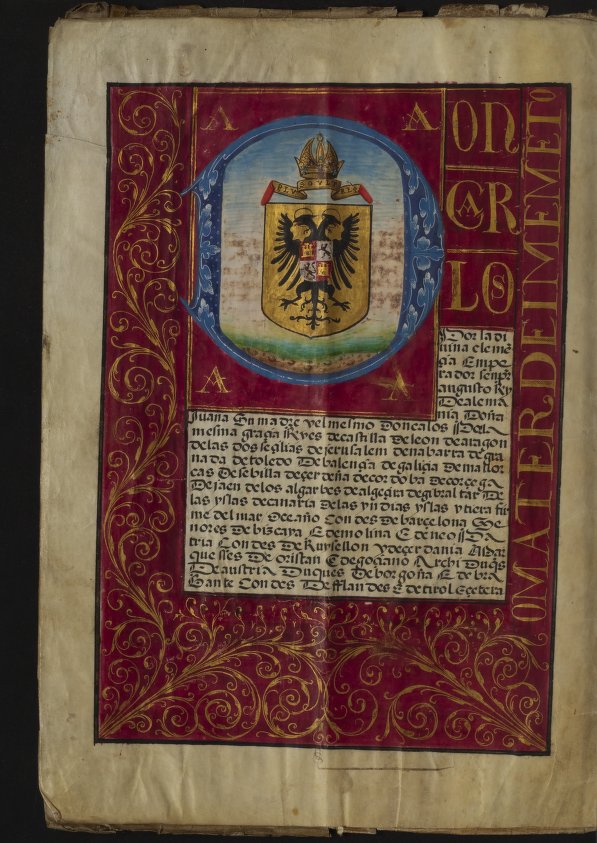 A A
ON
CAR
LOS
O MATER DEI MEMETO
A A
Por la di
uina cleme
çia Empe
rador senpr
augusto Ry
De alema
nia Doña
Juana su madre y el mesmo Don calos por la
mesma graçia Reyes de castilla De leon de aragon
de las dos seçilias de jerusalem de nabarra de gra
nada de toledo De balençia de galizia De mallor
cas De sebilla de çerdeña de cordoba De corçega
De jaen de los algarbes de algezira de gibraltar De
las yslas de canaria de las yndias yslas y tierra fir
me del mar Oceano Condes de barçelona Se
nores De bizcaya E de molina E de
tria Condes De Ruysellon y De çerdania Mar
queses De oristan E de goçiano Archi Duqs
De austria Duques De borgoña E de bra
bante Condes De fflandes E de tirol Eçetera